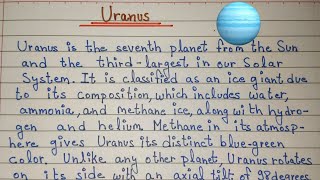 Uranus
Uranus is the seventh planet from the Sun
and the third-largest in our Solar
System. It is classified as an ice giant due
to its composition, which includes water,
ammonia, and methane ice, along with hydro-
gen and helium Methane in its atmosp-
here gives Uranus its distinct blue-green
color. Unlike any other planet, Uranus rotates
on its side with an axial tilt of 98 degrees.